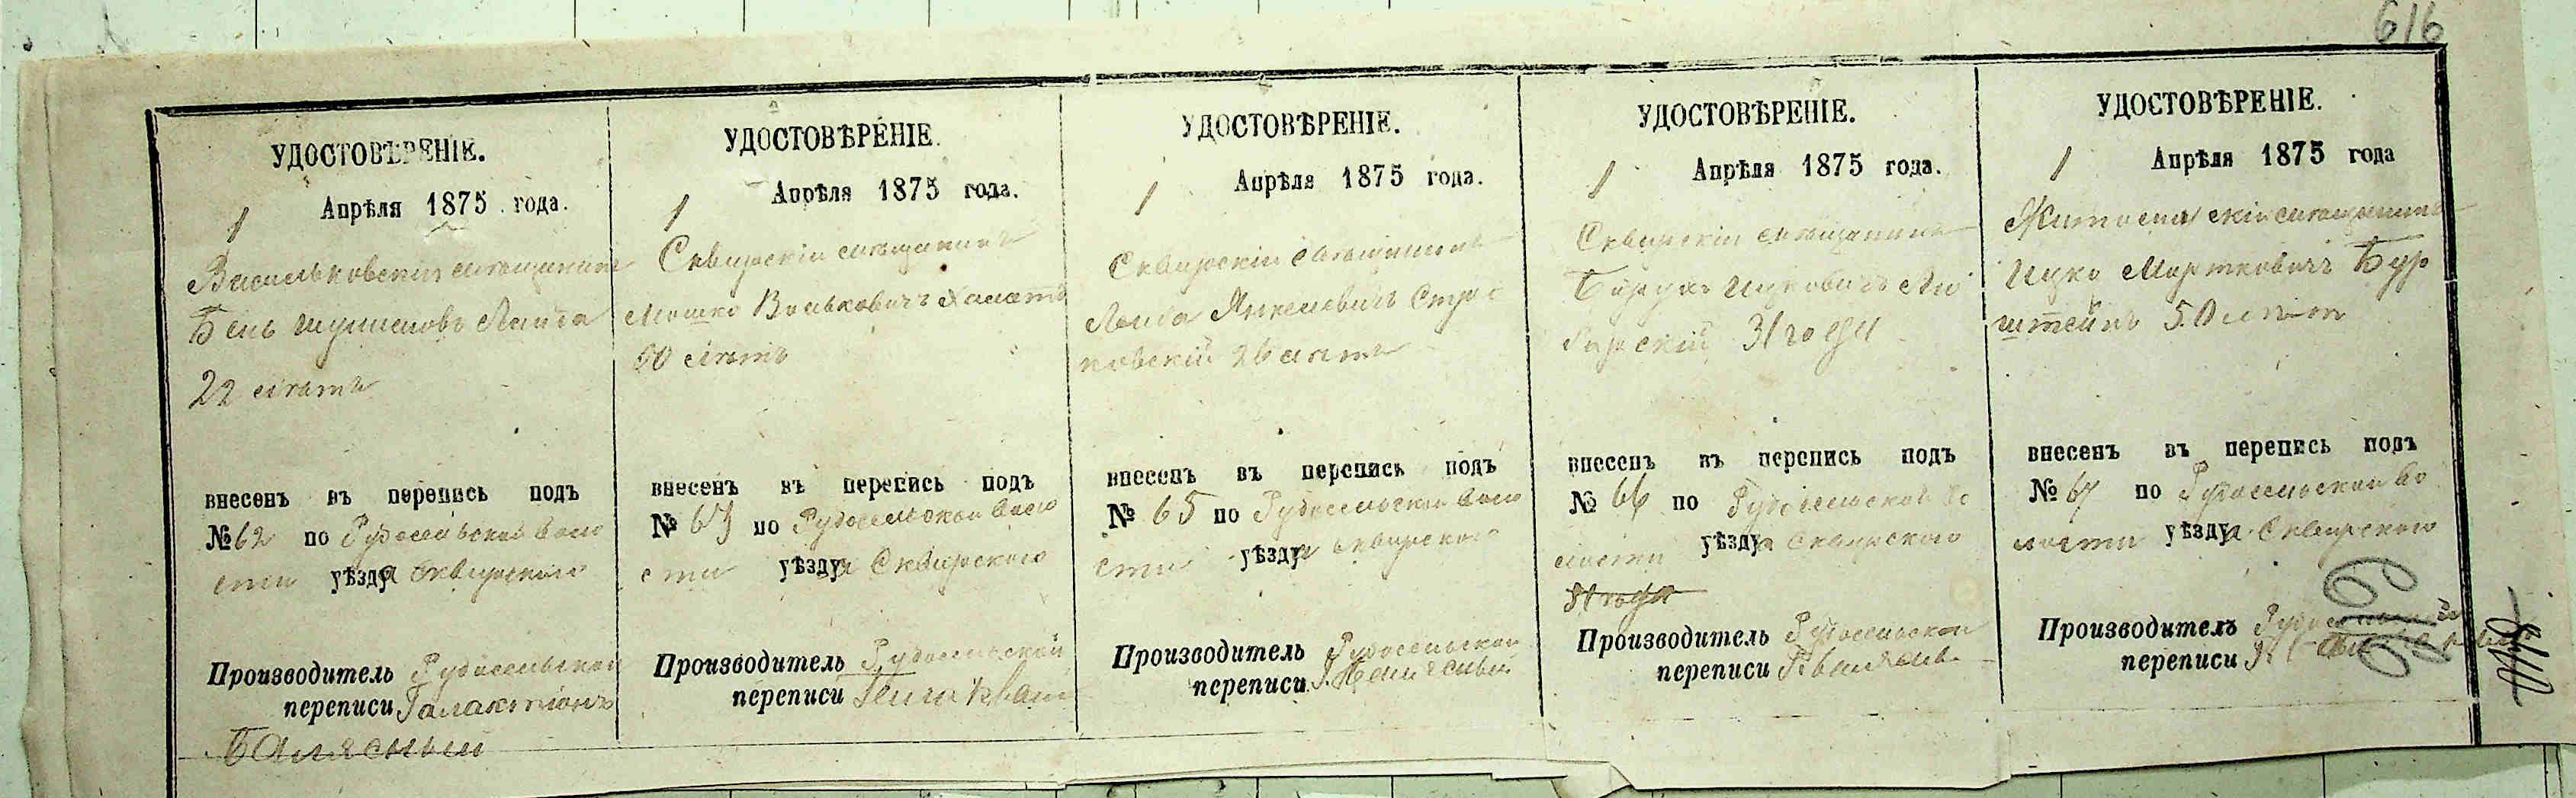 616
УДОСТОВѢРЕНІЕ.
1 Апрѣля 1875 года.
Васильковскій мѣщанинъ
Бень Шулимовъ Ланда
22 лѣтъ
внесенъ въ перепись подъ
№ 62 по Рудосельской воло
сти уѣзда Сквирскаго
Производитель Рудосельской
переписи Галактіонъ
Балясный
УДОСТОВѢРЕНІЕ.
1 Апрѣля 1875 года.
Сквирскій мѣщанинъ
Мошко Волькович
50 лѣтъ
внесенъ въ перепись подъ
№ по Рудосельской воло
сти уѣзда Сквирскаго
Производитель Рудосельской
переписи
УДОСТОВѢРЕНІЕ.
1 Апрѣля 1875 года.
Сквирскій мѣщанинъ
Лейба Янкелевичъ
26 лѣтъ
внесенъ въ перепись подъ
№ 65 по Рудосельской воло
сти уѣзда Сквирскаго
Производитель Рудосельской
переписи
УДОСТОВѢРЕНІЕ.
1 Апрѣля 1875 года.
Сквирскій мѣщанинъ
Ицковичъ
31 года
внесенъ въ перепись подъ
№ 66 по Рудосельской во
лости уѣзда Сквирскаго
31 года
Производитель Рудосельской
переписи
УДОСТОВѢРЕНІЕ.
1 Апрѣля 1875 года
мѣщанинъ
Ицко Мортковичъ Бур
штейнъ 50 лѣтъ
внесенъ въ перепись подъ
№ 67 по Рудосельской во
лости уѣзда Сквирскаго
Производитель
переписи